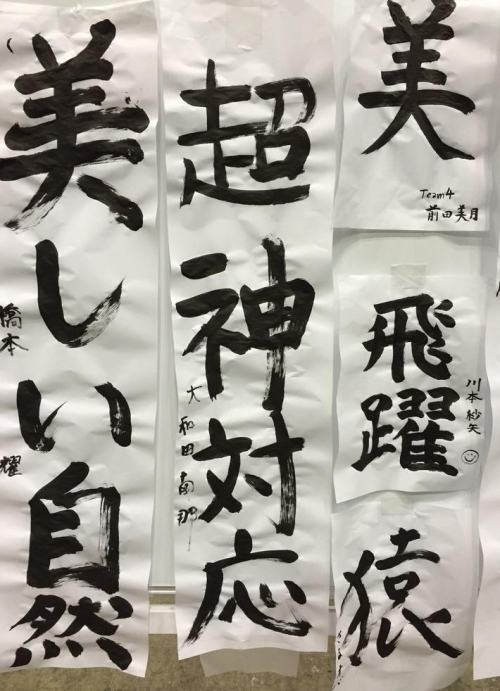 美しい自然
橋本
耀
超神対応
大和田南那
美
Team4
前田美月
飛躍
川本紗矢
猿